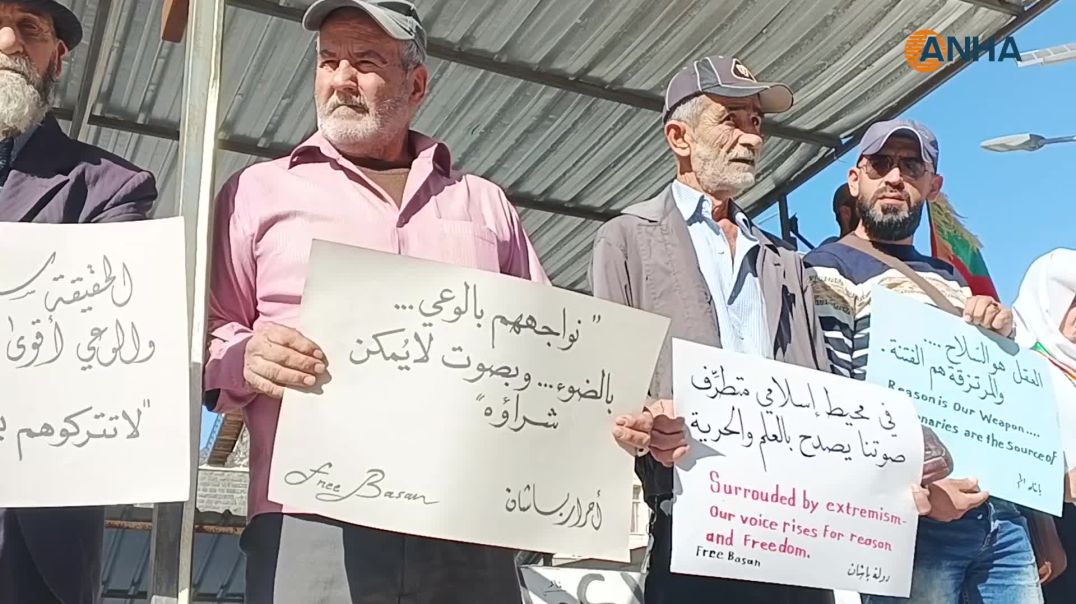 ANHA
الحقيقة
والوعي أقوى
"لاتتركوهم
"نواجههم بالوعي...
بالضوء... وبصوت لايُمكن
شراؤه"
Free Basan
أحرار باشان
في محيط إسلامي متطرّف
صوتنا يصدح بالعلم والحرية
Surrouded by extremism-
Our voice rises For reason
and Freedom.
Free Basan
دولة باشان
العقل هو السلاح ....
والمرتزقة هم الفتنة.
Reason is Our Weapon....
onaries are the Source of